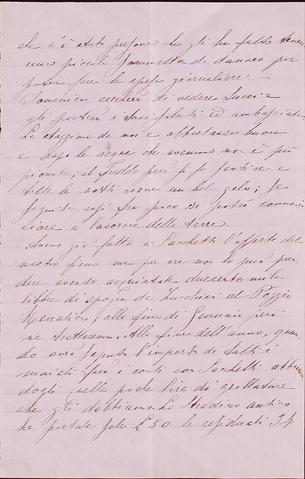 che c'è stato persone che gli ha fatto
una piccola sommetta di danaro per
poter fare le spese giornaliere.
Domenica cercherò di vedere Succi e
gli porterò i suoi saluti ed ambasciate.
La stagione da noi è abbastanza buona
e dopo le acque che avemmo non è più
piovuto; il freddo però si fa sentire e
tutte le notti viene un bel gelo; Se
seguita così fra poco si potrà comin
ciare a lavorare delle terre.
Avevo già fatta a Sacchetti l'offerta del
nostro fieno ma per ora non lo può pren
dere avendo acquistato duecento mila
libbre di spazio da
alla fine di Gennaio però
ne tratteremo. Alla fine dell'anno, quan
do avrò saputo l'importo di tutti i
maiali farò i conti con Sacchetti
dogli quelle poche lire di
che gli dobbiamo. Lo
ha portate sole £ 50 le